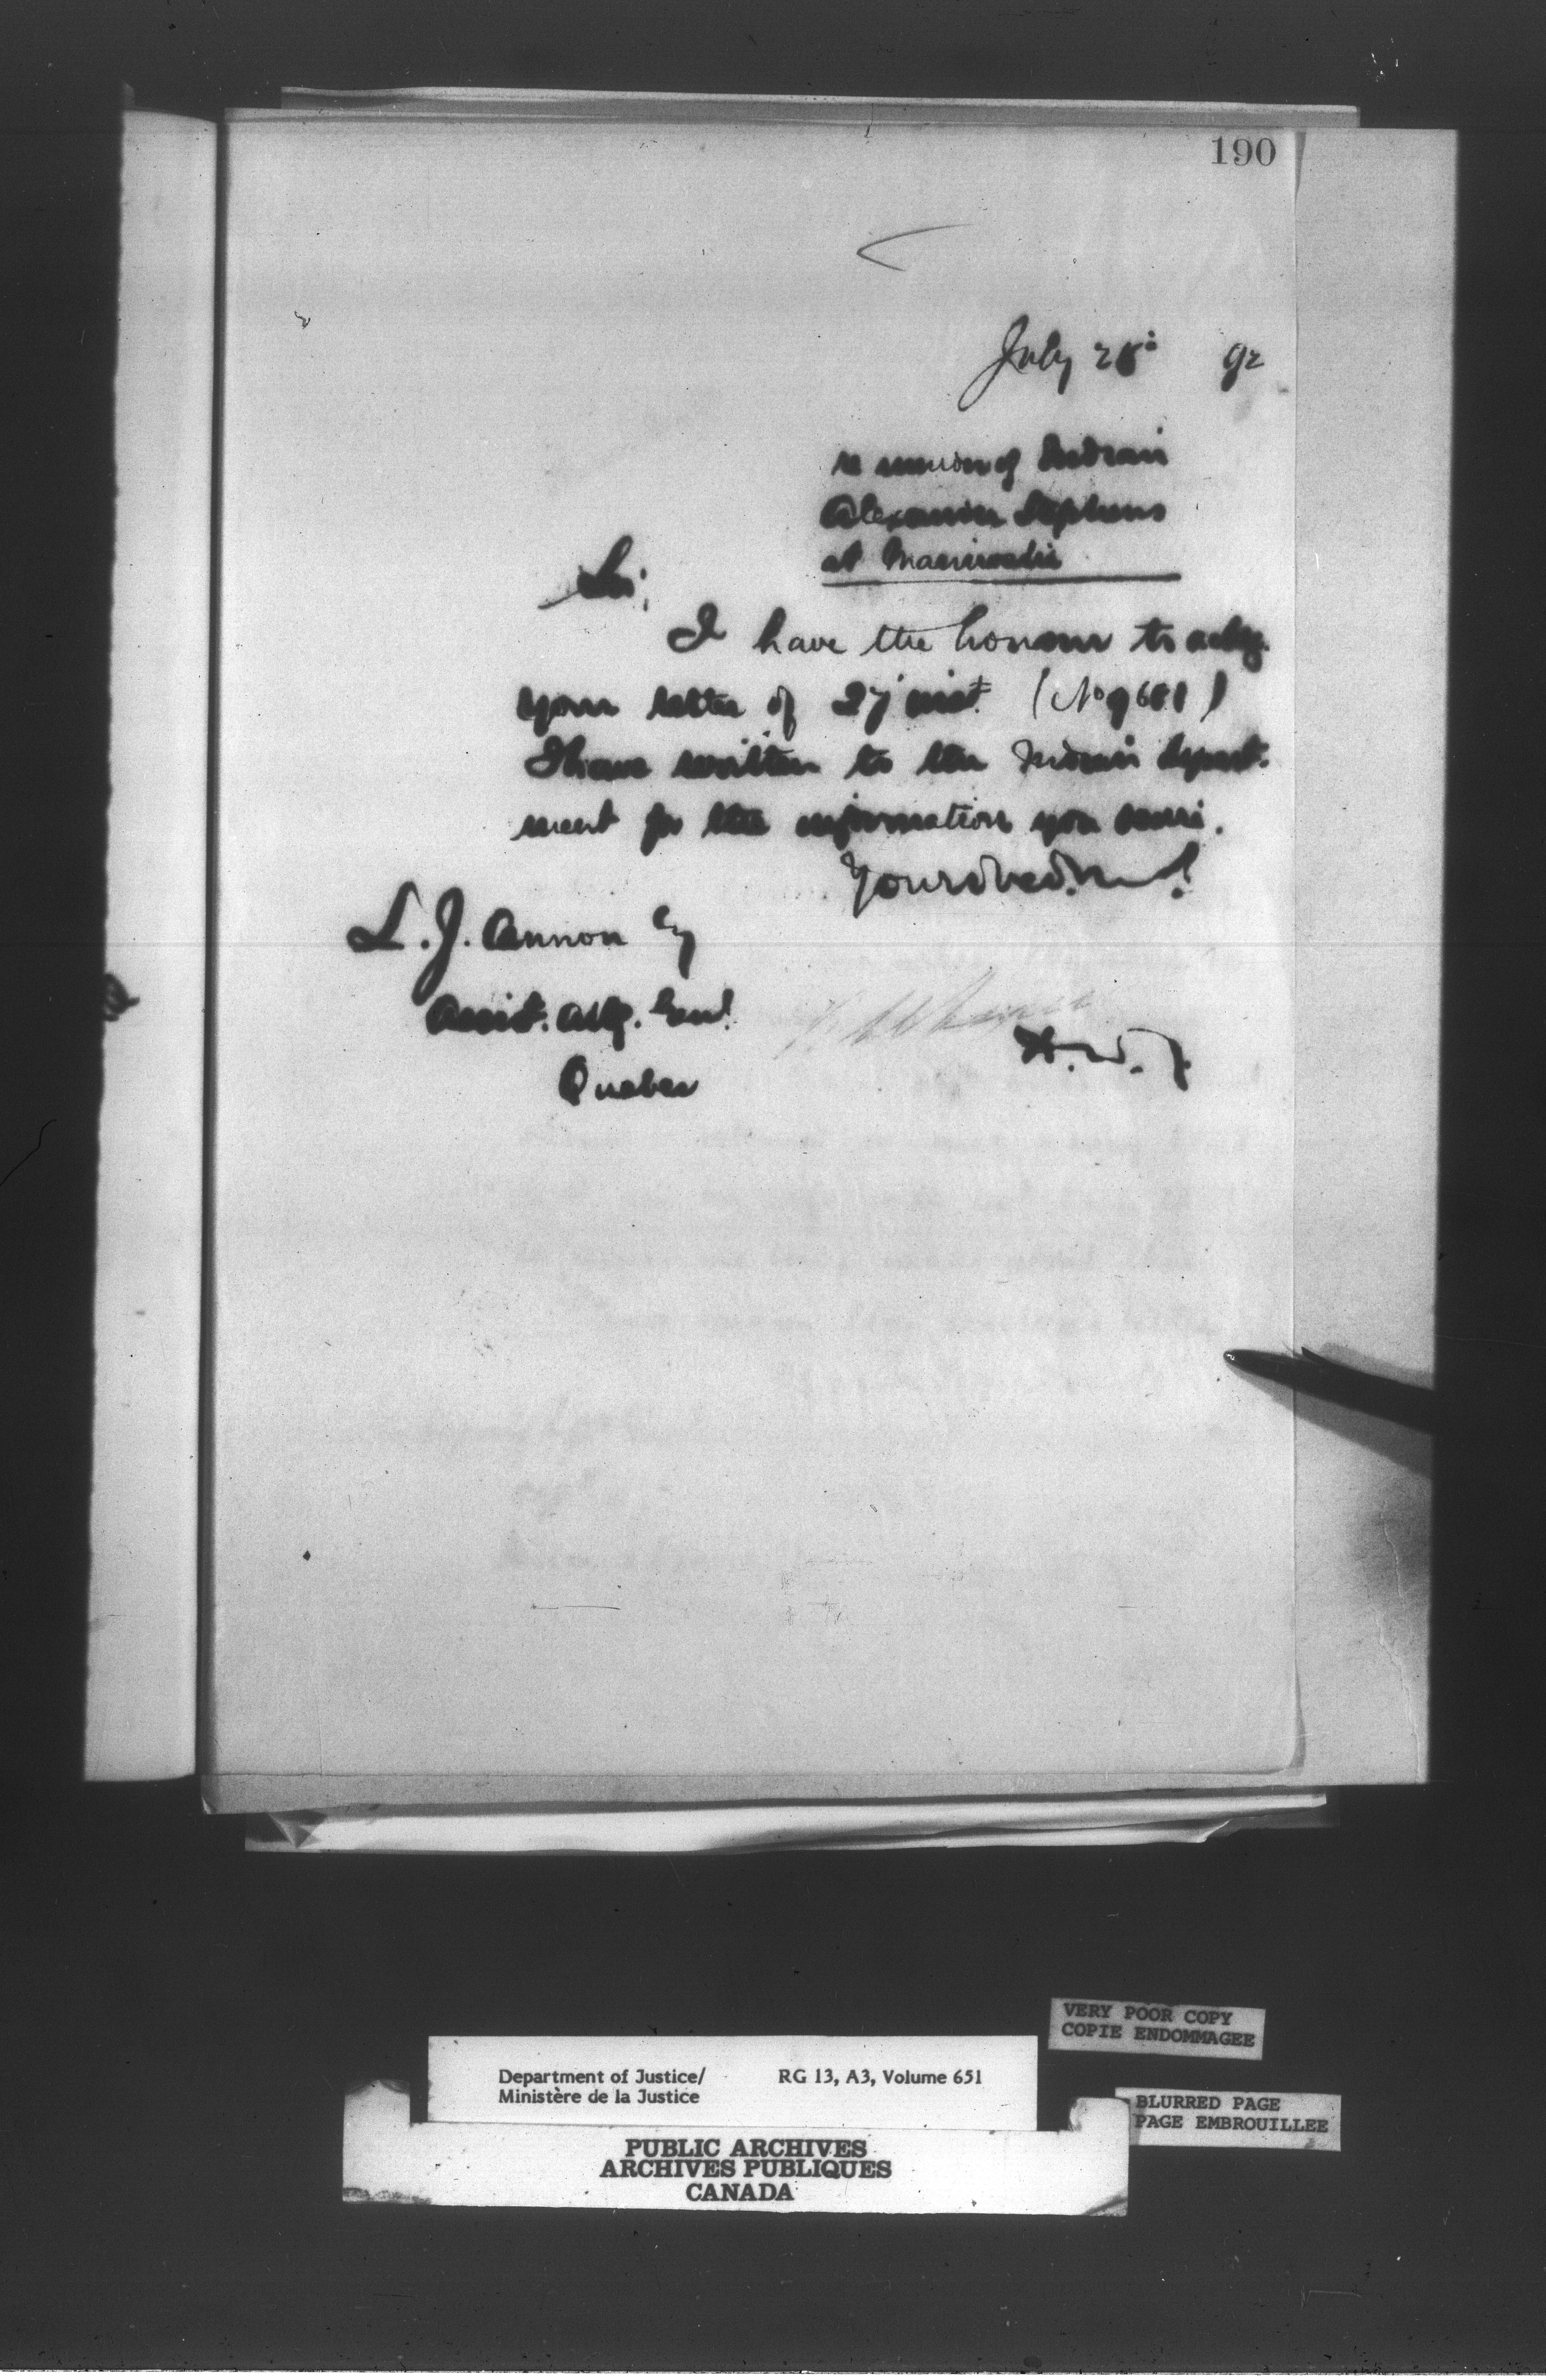 190
July 28° 92
re murder of Indian
Alexander Stephens
at Maniwaki
Sir,
I have the honour to ackg.
your letter of 27 inst. (No 9681)
I have written to the Indian depart-
ment for the information you desire.
Your obed. 
L. J. Cannon Esq
Assist. Atty. Genl.
Quebec
VERY POOR COPY
COPIE ENDOMMAGEE
Department of Justice/ RG 13, A3, Volume 651
Ministère de la Justice
BLURRED PAGE
PAGE EMBROUILLEE
PUBLIC ARCHIVES
ARCHIVES PUBLIQUES
CANADA